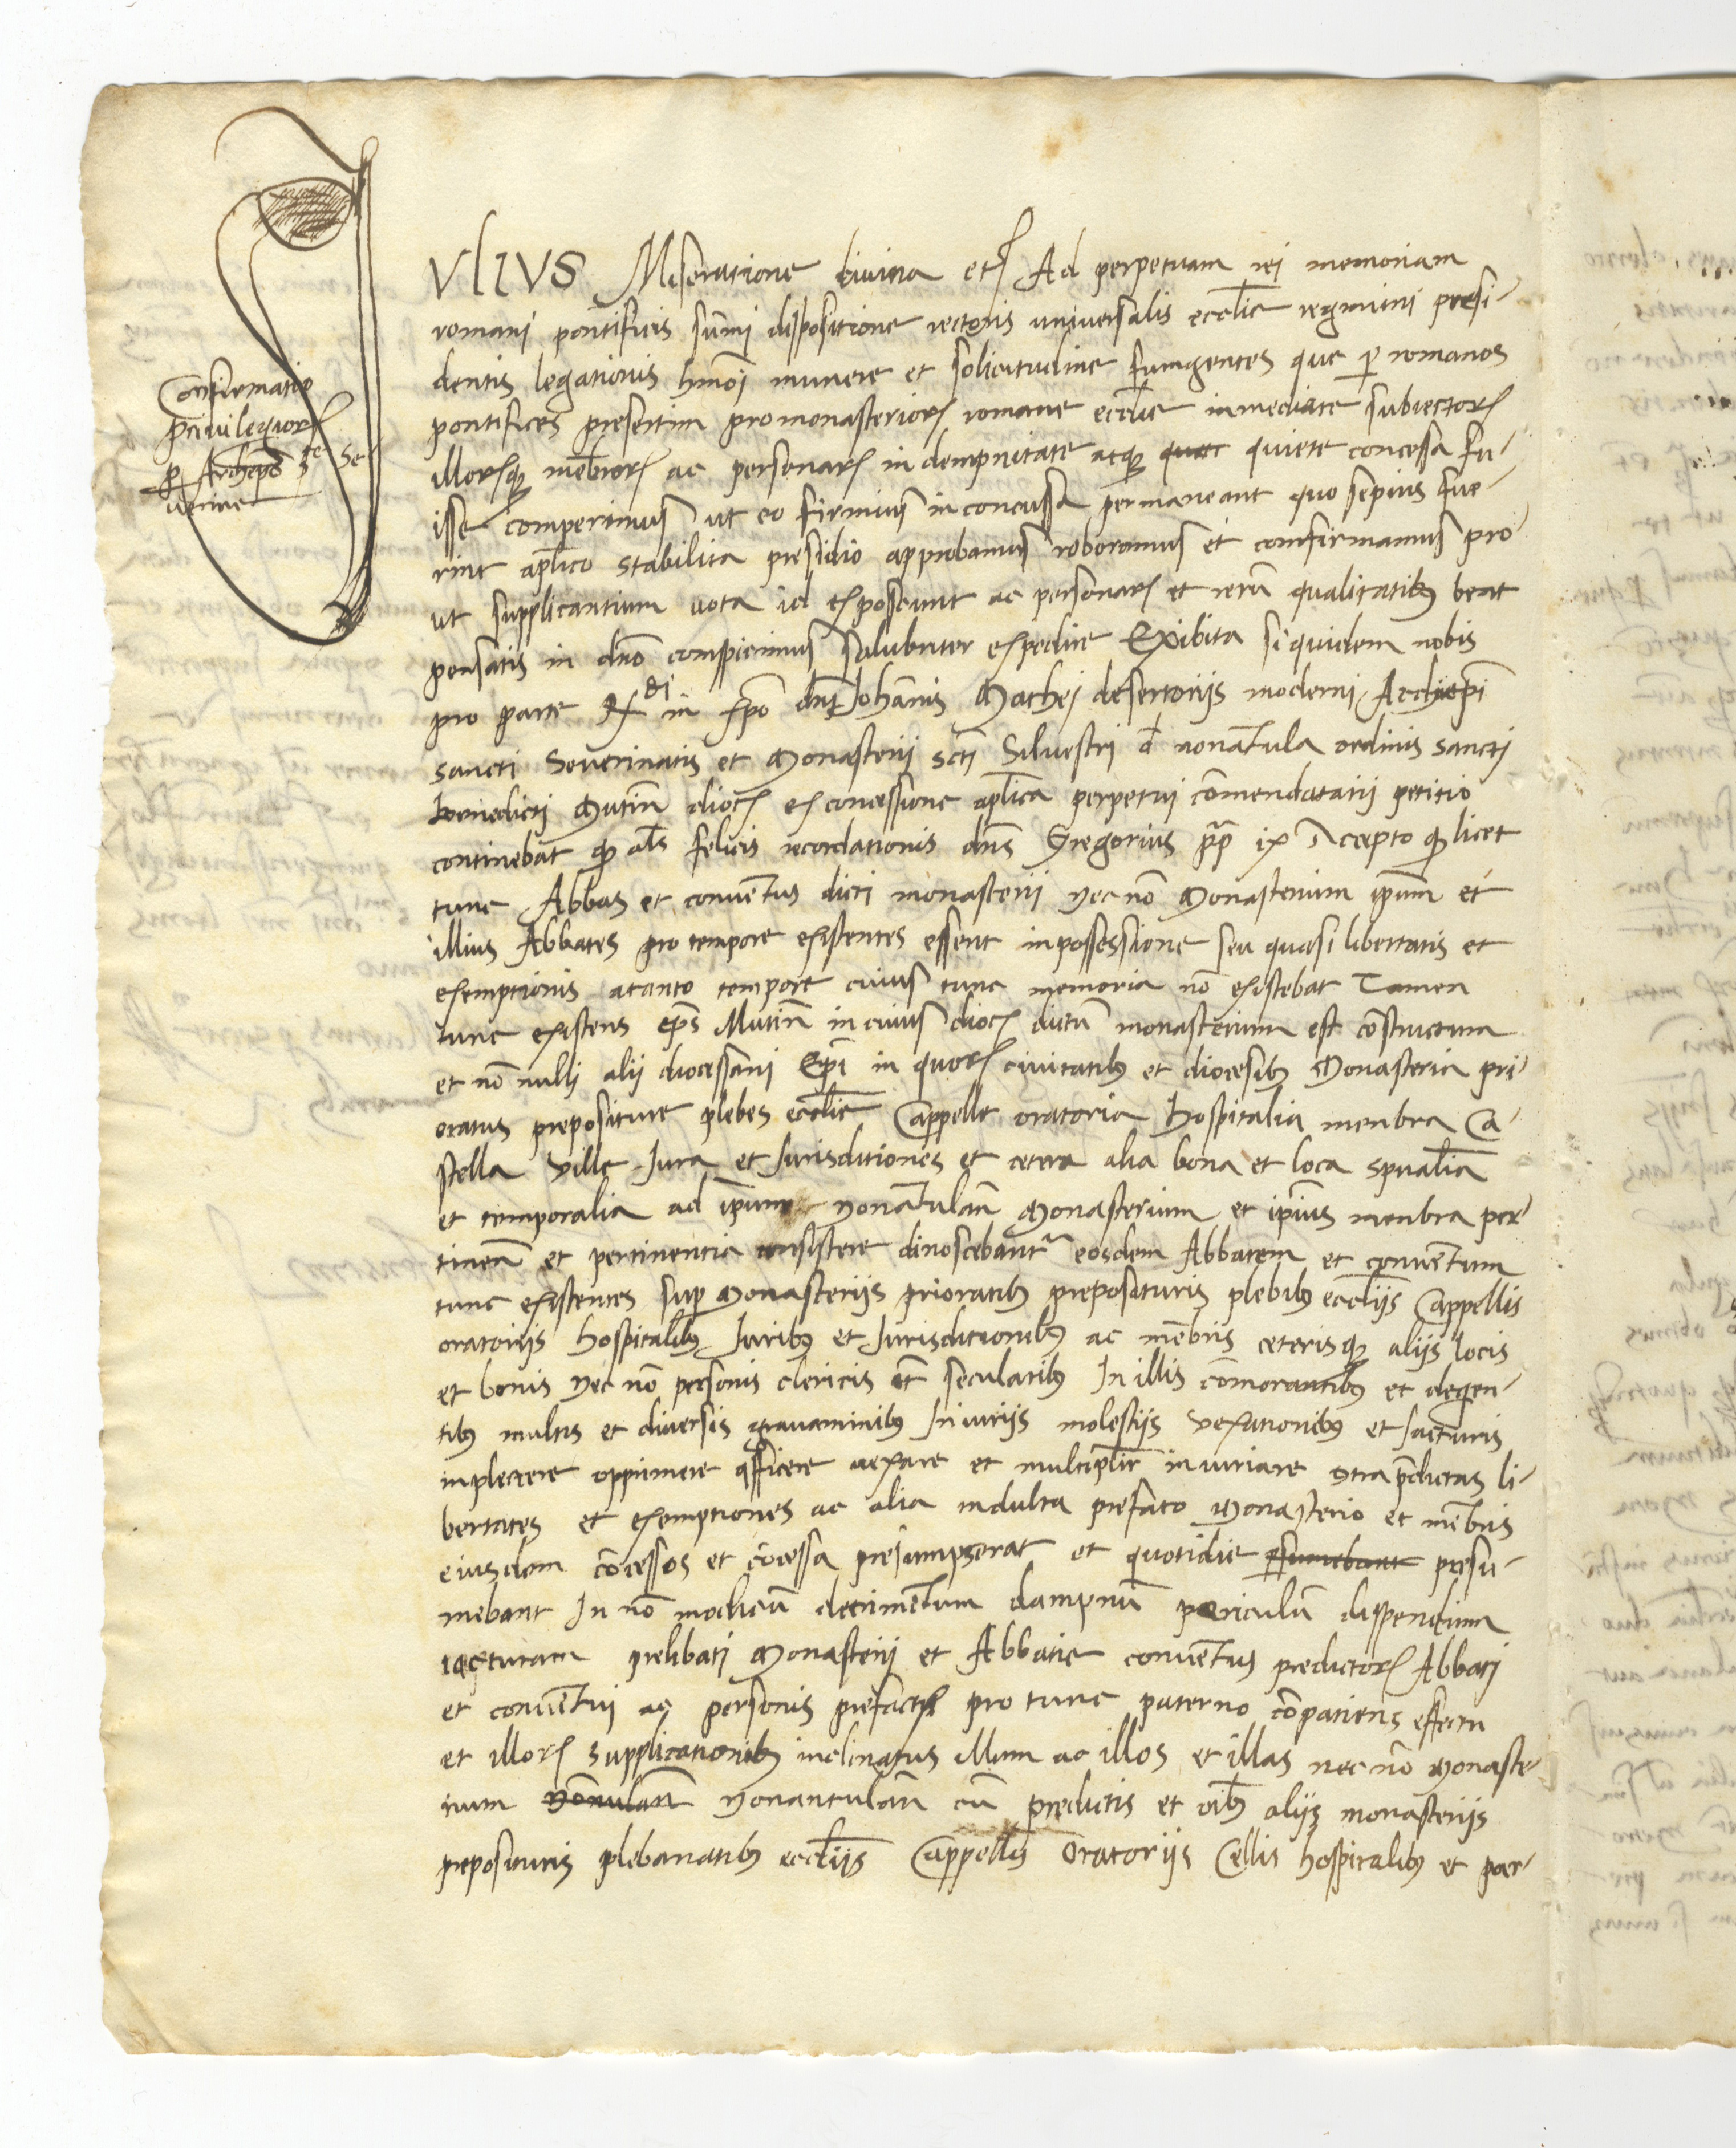 Confirmatio
privilegiorꝝ
ꝑ Archiepõ Ste Se
verine
IVLIVS Miseratione divina etc̃ Ad perpetuam rei memoriam
romani pontificis sum̃i dispositione rectoris universalis eccl̃ie regimini presi-
dentis legationis hmõi munere et solicitudine fungentes que ꝑ romanos
pontifices presertim pro monasteriorꝝ romane eccl̃ie inmediate subiectorꝝ
illorꝝqꝫ mẽbrorꝝ ac personarꝝ indempnitate atqꝫ quiete concessa fu-
isse comperimus ut eo firmius inconcussa permaneant quo sepius fue-
rint apl̃ico stabilita presidio approbamus roboramus et comfirmamus pro
ut supplicantium vota id exposcunt ac personarꝝ et rerũ qualitatibꝫ
pensatis in dño conspicimus salubriter expedire Exibita siquidem nobis
pro parte R di in xp̃o dñi Iohãnis Mathei desertoriis moderni Archiep̃i
sancti Severinatis et Monasterii sc̃ti Silvestri d̃ nonãtula ordinis sancti
benedicti Mutiñ diocꝭ ex concessione apl̃ica perpetui cõmendatarii petitio
continebat qꝫ al̃s felicis recordationis dñs Gregorius pp̃ ix Accepto qꝫ licet
tunc Abbas et convẽtus dicti monasterii nec nõ Monasterium ip̃um et
illius Abbates pro tempore existentes essent inpossessione seu quasi libertatis et
exemptionis atanto tempore cuius tunc memoria nõ existebat Tamen
tunc existens ep̃s Mutiñ in cuius diocꝭ dictũ monasterium est cõstructum
et nõ nulli alii diocessani Ep̃i in quorꝝ civitatibꝫ et diocesibꝫ Monasteria pri-
oratus prepositure plebes eccl̃ie Cappelle oratoria hospitalia menbra Ca-
stella ville Iura et Iurisditiones et cetera alia bona et loca sp̃ualia
et temporalia ad ip̃um nonãtulañ Monasterium et ip̃ius menbra per-
tineñ et pertinentia consistere dinoscebantᷣ eosdem Abbatem et convẽtum
tunc existentes sup̃ Monasteriis prioratibꝫ preposituris plebibꝫ eccl̃iis Cappellis
oratoriis hospitalibꝫ Iuribꝫ et Iurisditionibꝫ ac mẽbris ceterisqꝫ aliis locis
et bonis nec nõ personis clericis et secularibꝫ In illis cõmorantibꝫ et degen-
tibꝫ multis et diversis gravaminibꝫ Iniuriis molestiis vexationibꝫ et Iacturis
inplectere opprimere afficere vexare et multipl̃ir iniuriare ɔtra p̃dictas li-
bertates et exemptiones ac alia indulta prefato Monasterio et mẽbris
eiusdem cõcessos et cõcessa presumpserat et quotidie presu-
mebant In nõ modicũ detrimẽtum dampnũ periculũ dispendium
iacturam prelibati Monasterii et Abbatie convẽtus predictorꝝ Abbati
et convẽtui ac personis prefactis pro tunc paterno cõpatiens effectu
et illorꝝ supplicationibꝫ inclinatus illum ac illos et illas nec nõ Monaste-
rium nonantulañ cũ predictis et oĩbꝫ aliis monasteriis
preposituris plebanatibꝫ eccl̃iis Cappellis Oratoriis Cellis hospitalibꝫ et per-